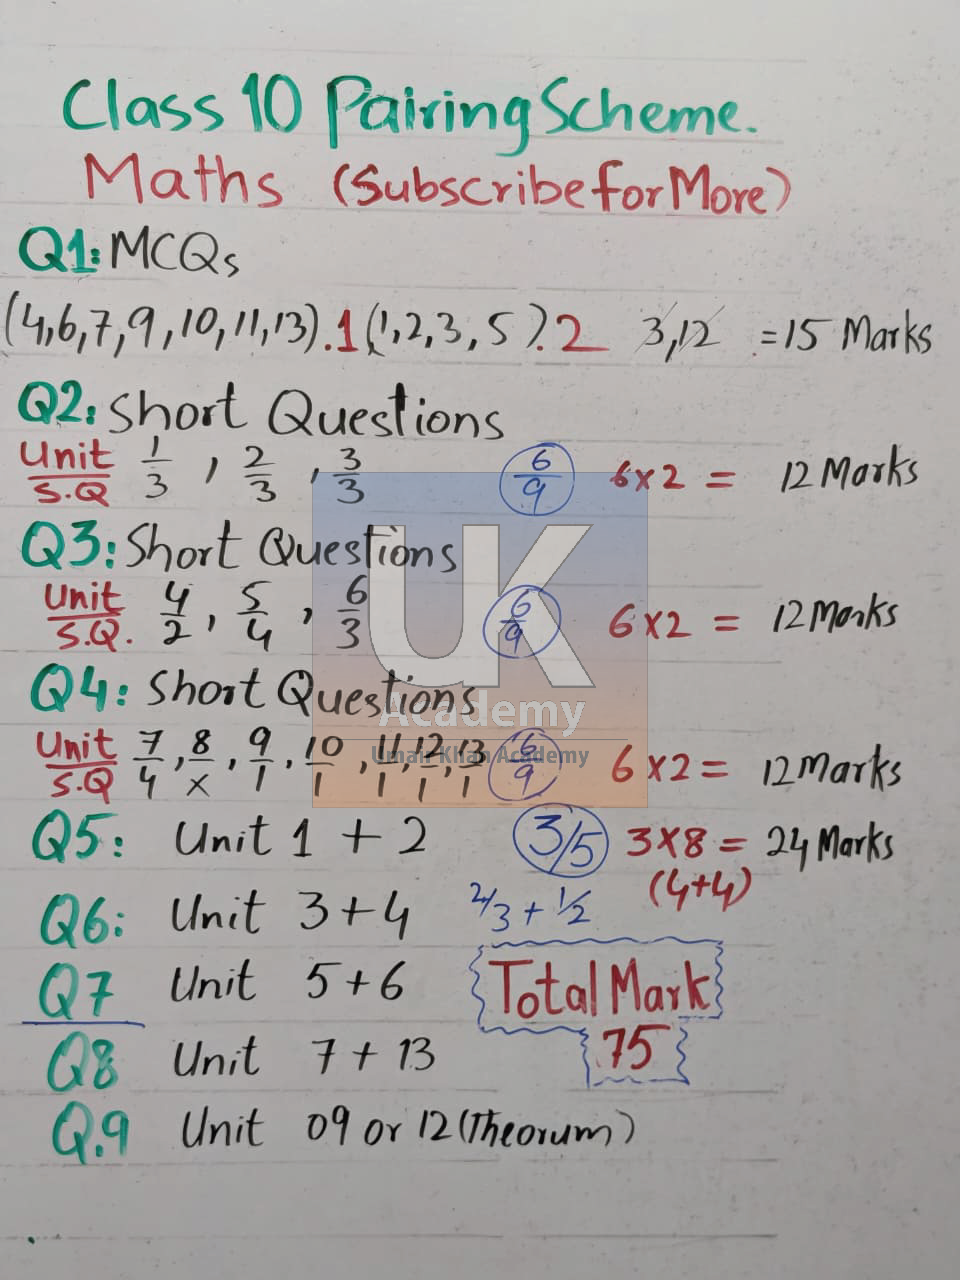 Class 10 Pairing Scheme.
Maths (Subscribe for More)
Q1: MCQs
(4,6,7,9,10,11,13).1 (1,2,3,5).2 3,12 = 15 Marks
Q2: Short Questions
Unit/S.Q 1/3, 2/3, 3/3 6/9 6x2 = 12 Marks
Q3: Short Questions
Unit/S.Q. 4/2, 5/4, 6/3 6/9 6x2 = 12 Marks
Q4: Short Questions
Unit/S.Q 7/4, 8/x, 9/1, 10/1, 11/1, 12/1, 13/1 6/9 6x2 = 12 Marks
Q5: Unit 1 + 2 3/5 3x8 = 24 Marks
(4+4)
Q6: Unit 3+4 2/3 + 1/2
Q7 Unit 5+6 Total Mark
75
Q8 Unit 7 + 13
Q.9 Unit 09 or 12 (Theorum)
UK
Academy
Umair Khan Academy